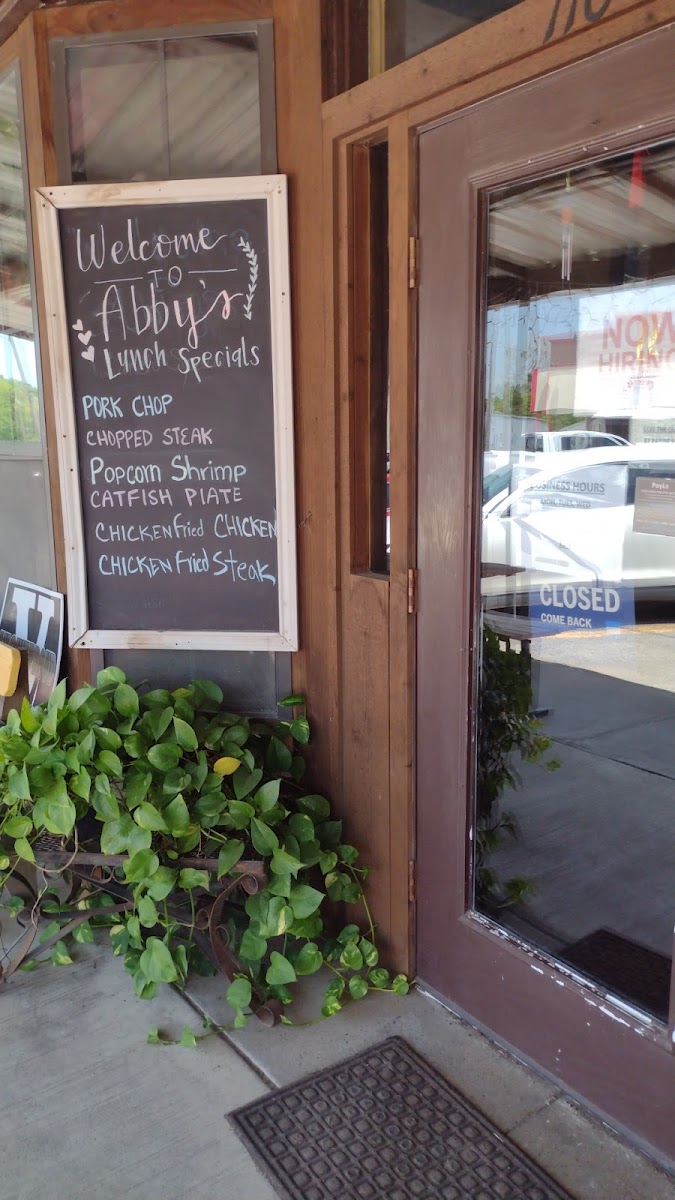 Welcome
TO
Abby's
Lunch Specials
PORK CHOP
CHOPPED STEAK
Popcorn Shrimp
CATFISH PlATE
CHICKEN fried CHICKEN
CHICKEN fried Steak
110
NOW
HIRING
BUSINESS HOURS
MON, TUES, WED
CLOSED
COME BACK
V